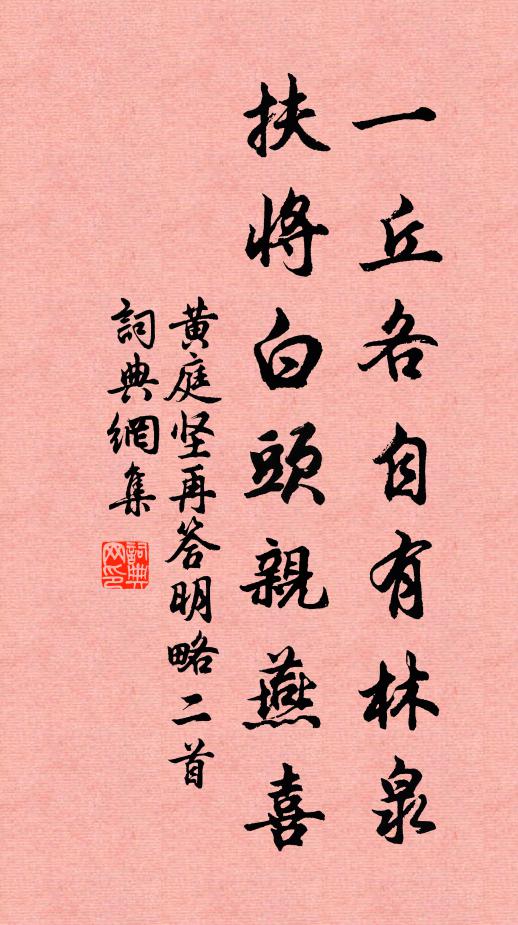 一丘各自有林泉
扶將白頭親燕喜
黄庭坚再答明略二首
詞典網集
詞典
网印